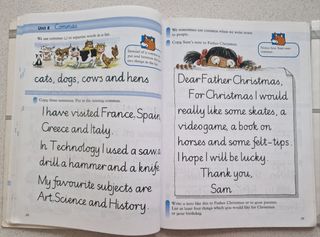 Unit 8 Commas
We use commas (,) to separate words in a list.
cats, dogs, cows and hens
Copy these sentences. Put in the missing commas.
I have visited France, Spain,
Greece and Italy.
In Technology I used a saw, a
drill, a hammer and a knife.
My favourite subjects are
Art, Science and History.
We sometimes use commas when we write notes
to people.
Copy Sam's note to Father Christmas.
Dear Father Christmas,
For Christmas I would
really like some skates, a
videogame, a book on
horses and some felt-tips.
I hope I will be lucky.
Thank you,
Sam
Write a note like this to Father Christmas or to your parents.
List at least four things which you would like for Christmas
or your birthday.